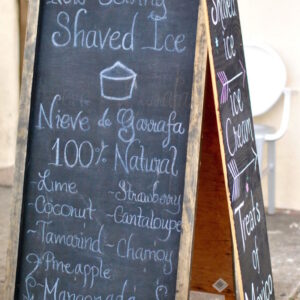 Now Serving
Shaved Ice
Nieve de Garrafa
100% Natural
Lime ~Strawberry
~Coconut ~Cantaloupe
~Tamarind ~Chamoy
~Pineapple
Shaved
ice
Ice
Cream
Treats
of
Mexico